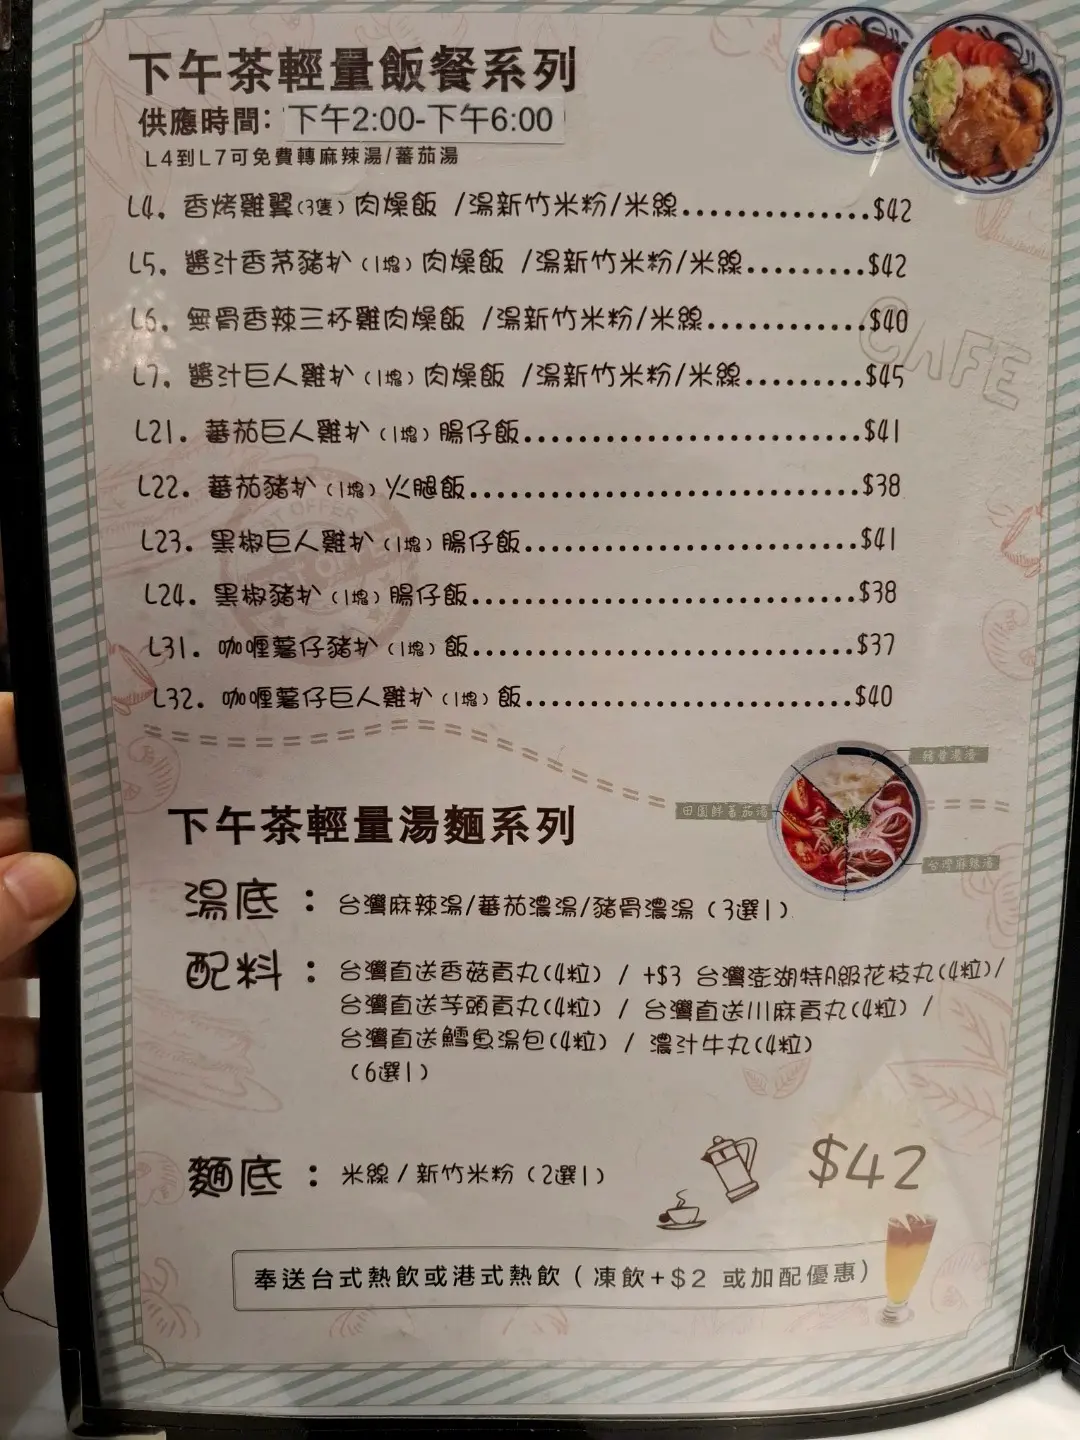 下午茶輕量飯餐系列
供應時間: 下午2:00-下午6:00
L4到L7可免費轉麻辣湯/蕃茄湯
L4. 香烤雞翼(3隻)肉燥飯 /湯新竹米粉/米線..............$42
L5. 醬汁香茅豬扒(1塊)肉燥飯 /湯新竹米粉/米線.........$42
L6. 無骨香辣三杯雞肉燥飯 /湯新竹米粉/米線............$40
L7. 醬汁巨人雞扒(1塊)肉燥飯 /湯新竹米粉/米線.........$45
L21. 蕃茄巨人雞扒(1塊)腸仔飯..........................$41
L22. 蕃茄豬扒(1塊)火腿飯..............................$38
L23. 黑椒巨人雞扒(1塊)腸仔飯..........................$41
L24. 黑椒豬扒(1塊)腸仔飯..............................$38
L31. 咖喱薯仔豬扒(1塊)飯..............................$37
L32. 咖喱薯仔巨人雞扒(1塊)飯..........................$40
CAFE
OFFER
豬骨濃湯
田園鮮蕃茄湯
台灣麻辣湯
下午茶輕量湯麵系列
湯底 : 台灣麻辣湯/蕃茄濃湯/豬骨濃湯 (3選1)
配料 : 台灣直送香菇貢丸(4粒) / +$3 台灣澎湖特A級花枝丸(4粒)/
台灣直送芋頭貢丸(4粒) / 台灣直送川麻貢丸(4粒) /
台灣直送鱈魚湯包(4粒) / 濃汁牛丸(4粒)
(6選1)
麵底 : 米線/新竹米粉 (2選1)
$42
奉送台式熱飲或港式熱飲 (凍飲+$2 或加配優惠)